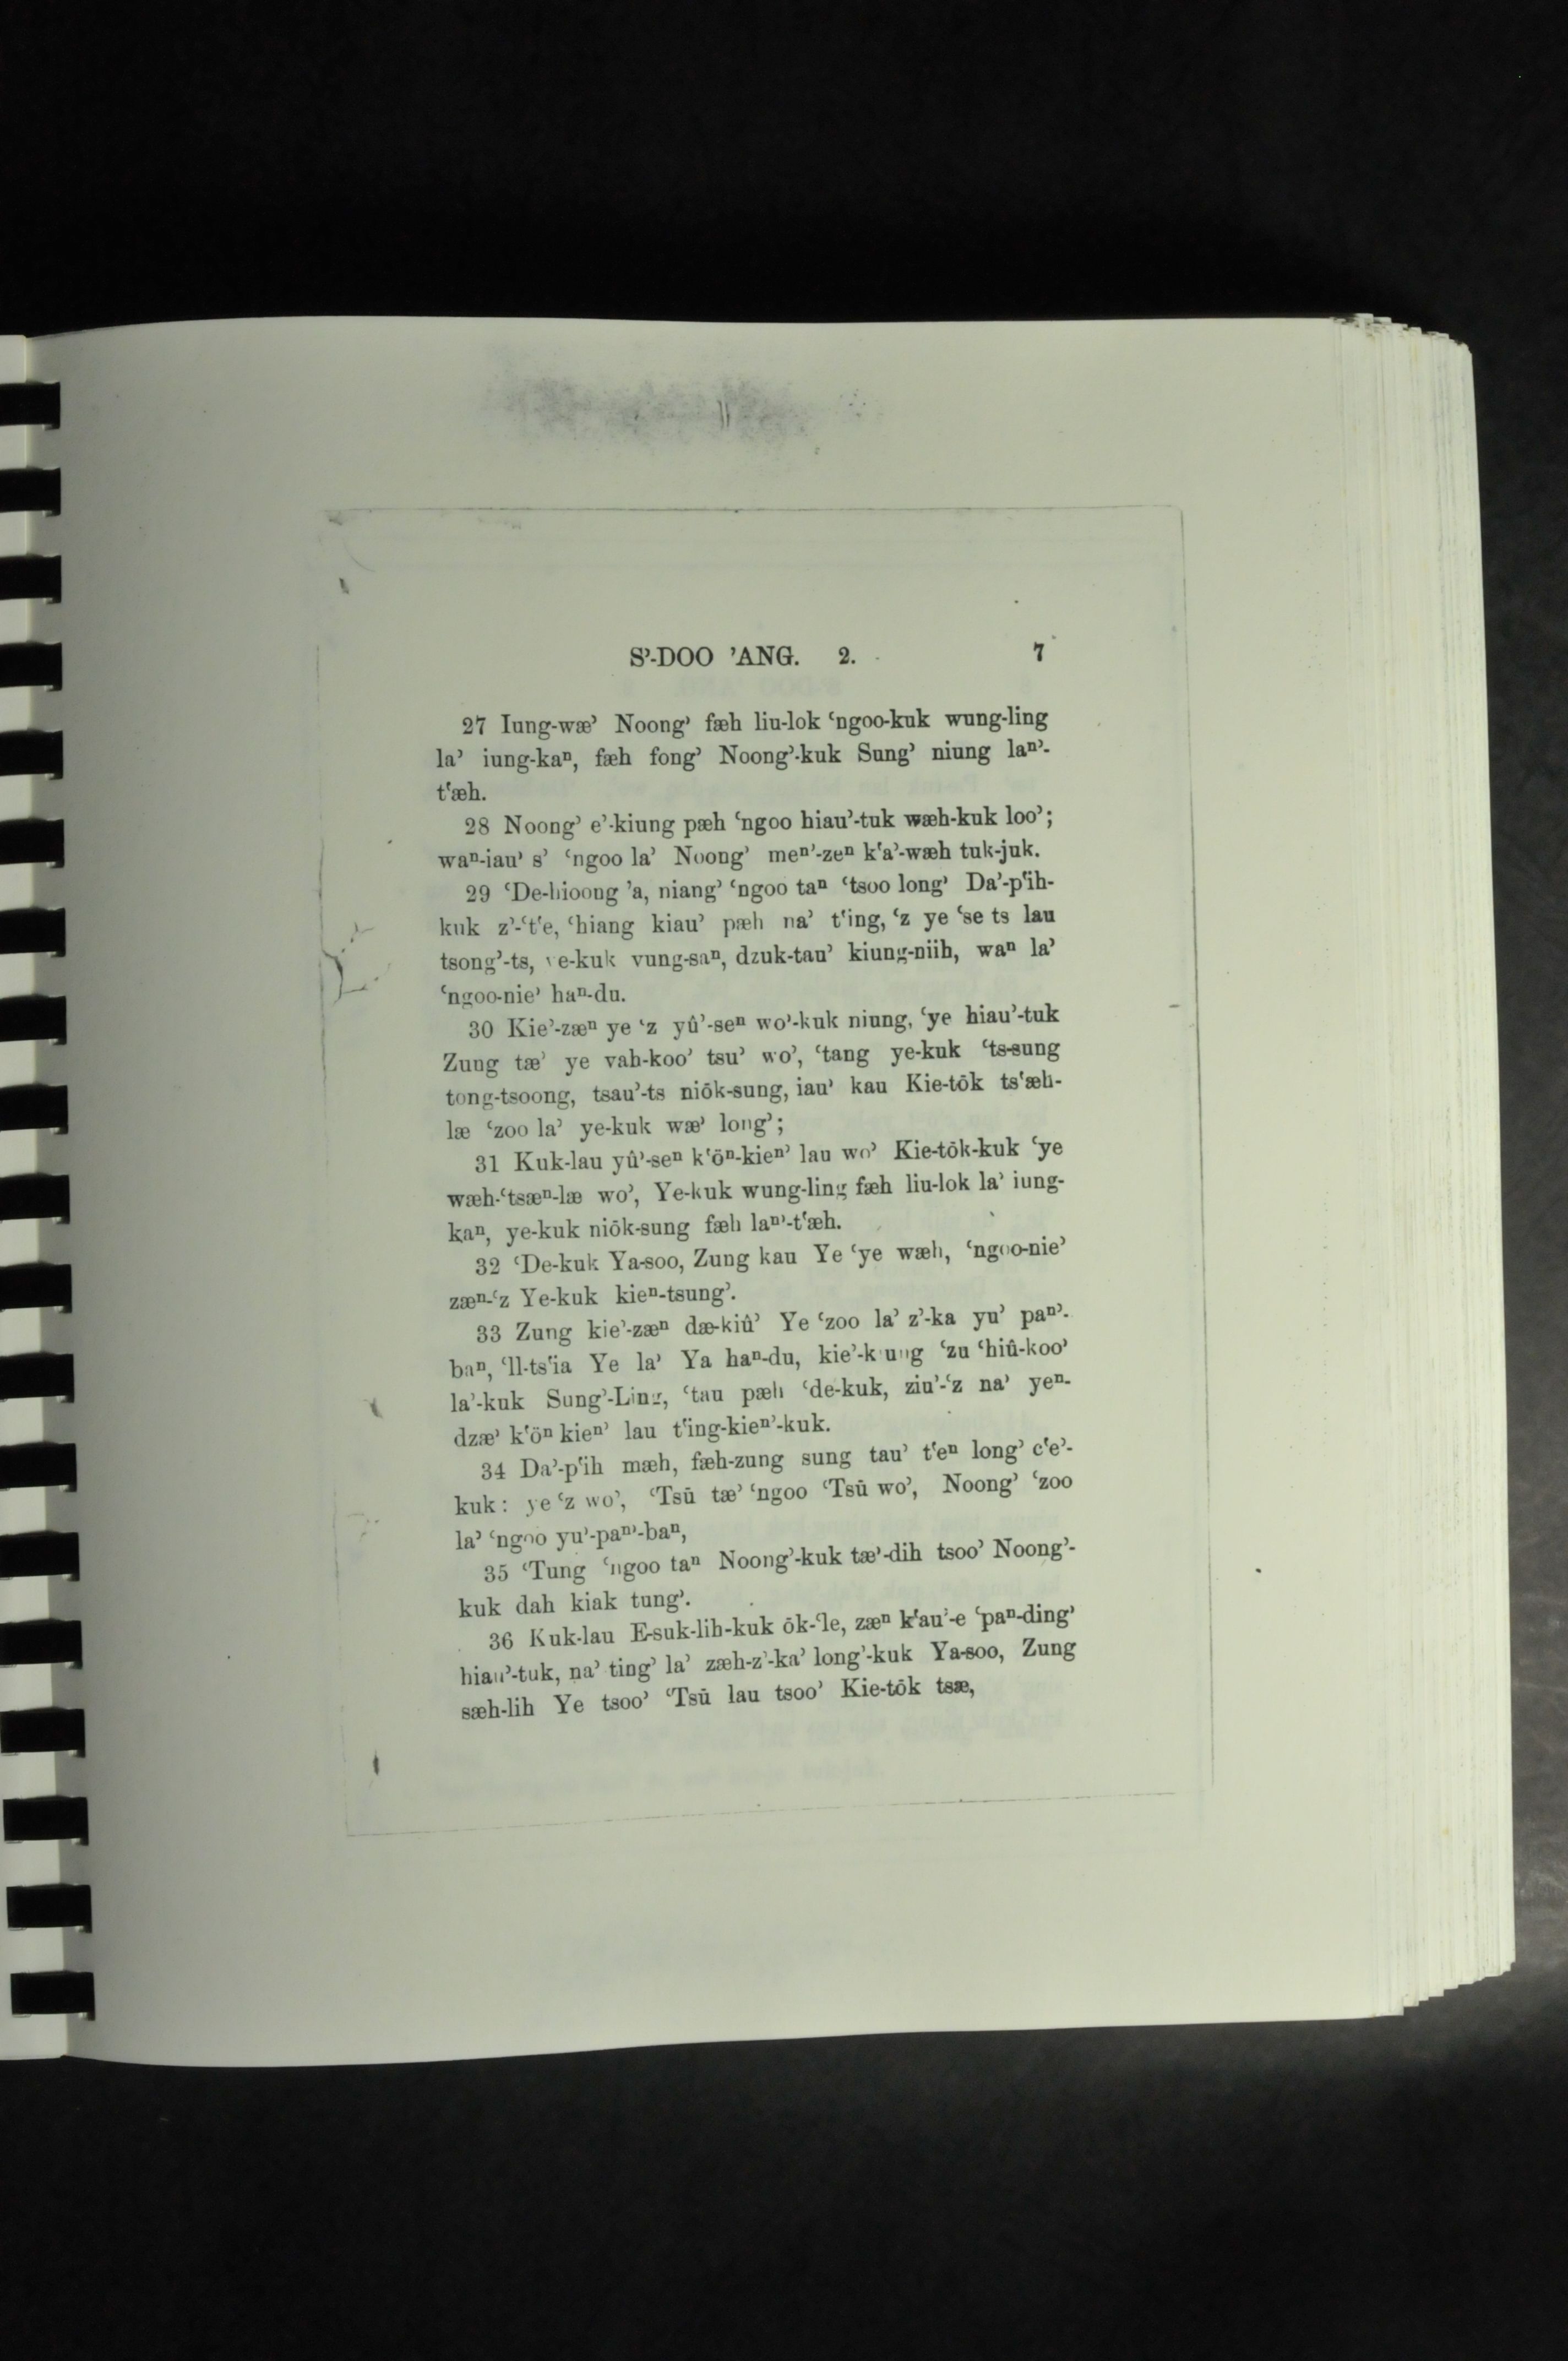 S’-DOO ’ANG. 2. 7
27 Iung-wæ’ Noong’ fæh liu-lok ‘ngoo-kuk wung-ling
la’ iung-kaⁿ, fæh fong’ Noong’-kuk Sung’ niung laⁿ’-
t‘æh.
28 Noong’ e’-kiung pæh ‘ngoo hiau’-tuk wæh-kuk loo’;
waⁿ-iau’ s’ ‘ngoo la’ Noong’ meⁿ’-zeⁿ k‘a’-wæh tuk-juk.
29 ‘De-hioong ’a, niang’ ‘ngoo taⁿ ‘tsoo long’ Da’-p‘ih-
kuk z’-‘t‘e, ‘hiang kiau’ pæh na’ t‘ing, ‘z ye ‘se ts lau
tsong’-ts, ye-kuk vung-saⁿ, dzuk-tau’ kiung-niih, waⁿ la’
‘ngoo-nie’ haⁿ-du.
30 Kie’-zæⁿ ye ‘z yû’-seⁿ wo’-kuk niung, ‘ye hiau’-tuk
Zung tæ’ ye vah-koo’ tsu’ wo’, ‘tang ye-kuk ‘ts-sung
tong-tsoong, tsau’-ts niōk-sung, iau’ kau Kie-tōk ts‘æh-
læ ‘zoo la’ ye-kuk wæ’ long’;
31 Kuk-lau yû’-seⁿ k‘öⁿ-kieⁿ’ lau wo’ Kie-tōk-kuk ‘ye
wæh-‘tsæⁿ-læ wo’, Ye-kuk wung-ling fæh liu-lok la’ iung-
kaⁿ, ye-kuk niōk-sung fæh laⁿ’-t‘æh.
32 ‘De-kuk Ya-soo, Zung kau Ye ‘ye wæh, ‘ngoo-nie’
zæⁿ-‘z Ye-kuk kieⁿ-tsung’.
33 Zung kie’-zæⁿ dæ-kiû’ Ye ‘zoo la’ z’-ka yu’ paⁿ’-
baⁿ, ‘ll-ts‘ia Ye la’ Ya haⁿ-du, kie’-kiung ‘zu ‘hiû-koo’
la’-kuk Sung’-Ling, ‘tau pæh ‘de-kuk, ziu’-‘z na’ yeⁿ-
dzæ’ k‘öⁿ kieⁿ’ lau t‘ing-kieⁿ’-kuk.
34 Da’-p‘ih mæh, fæh-zung sung tau’ t‘eⁿ long’ c‘e’-
kuk: ye ‘z wo’, ‘Tsū tæ’ ‘ngoo ‘Tsū wo’, Noong’ ‘zoo
la’ ‘ngoo yu’-paⁿ’-baⁿ,
35 ‘Tung ‘ngoo taⁿ Noong’-kuk tæ’-dih tsoo’ Noong’-
kuk dah kiak tung’.
36 Kuk-lau E-suk-lih-kuk ōk-‘le, zæⁿ k‘au’-e ‘paⁿ-ding’
hiau’-tuk, na’ ting’ la’ zæh-z’-ka’ long’-kuk Ya-soo, Zung
sæh-lih Ye tsoo’ ‘Tsū lau tsoo’ Kie-tōk tsæ,